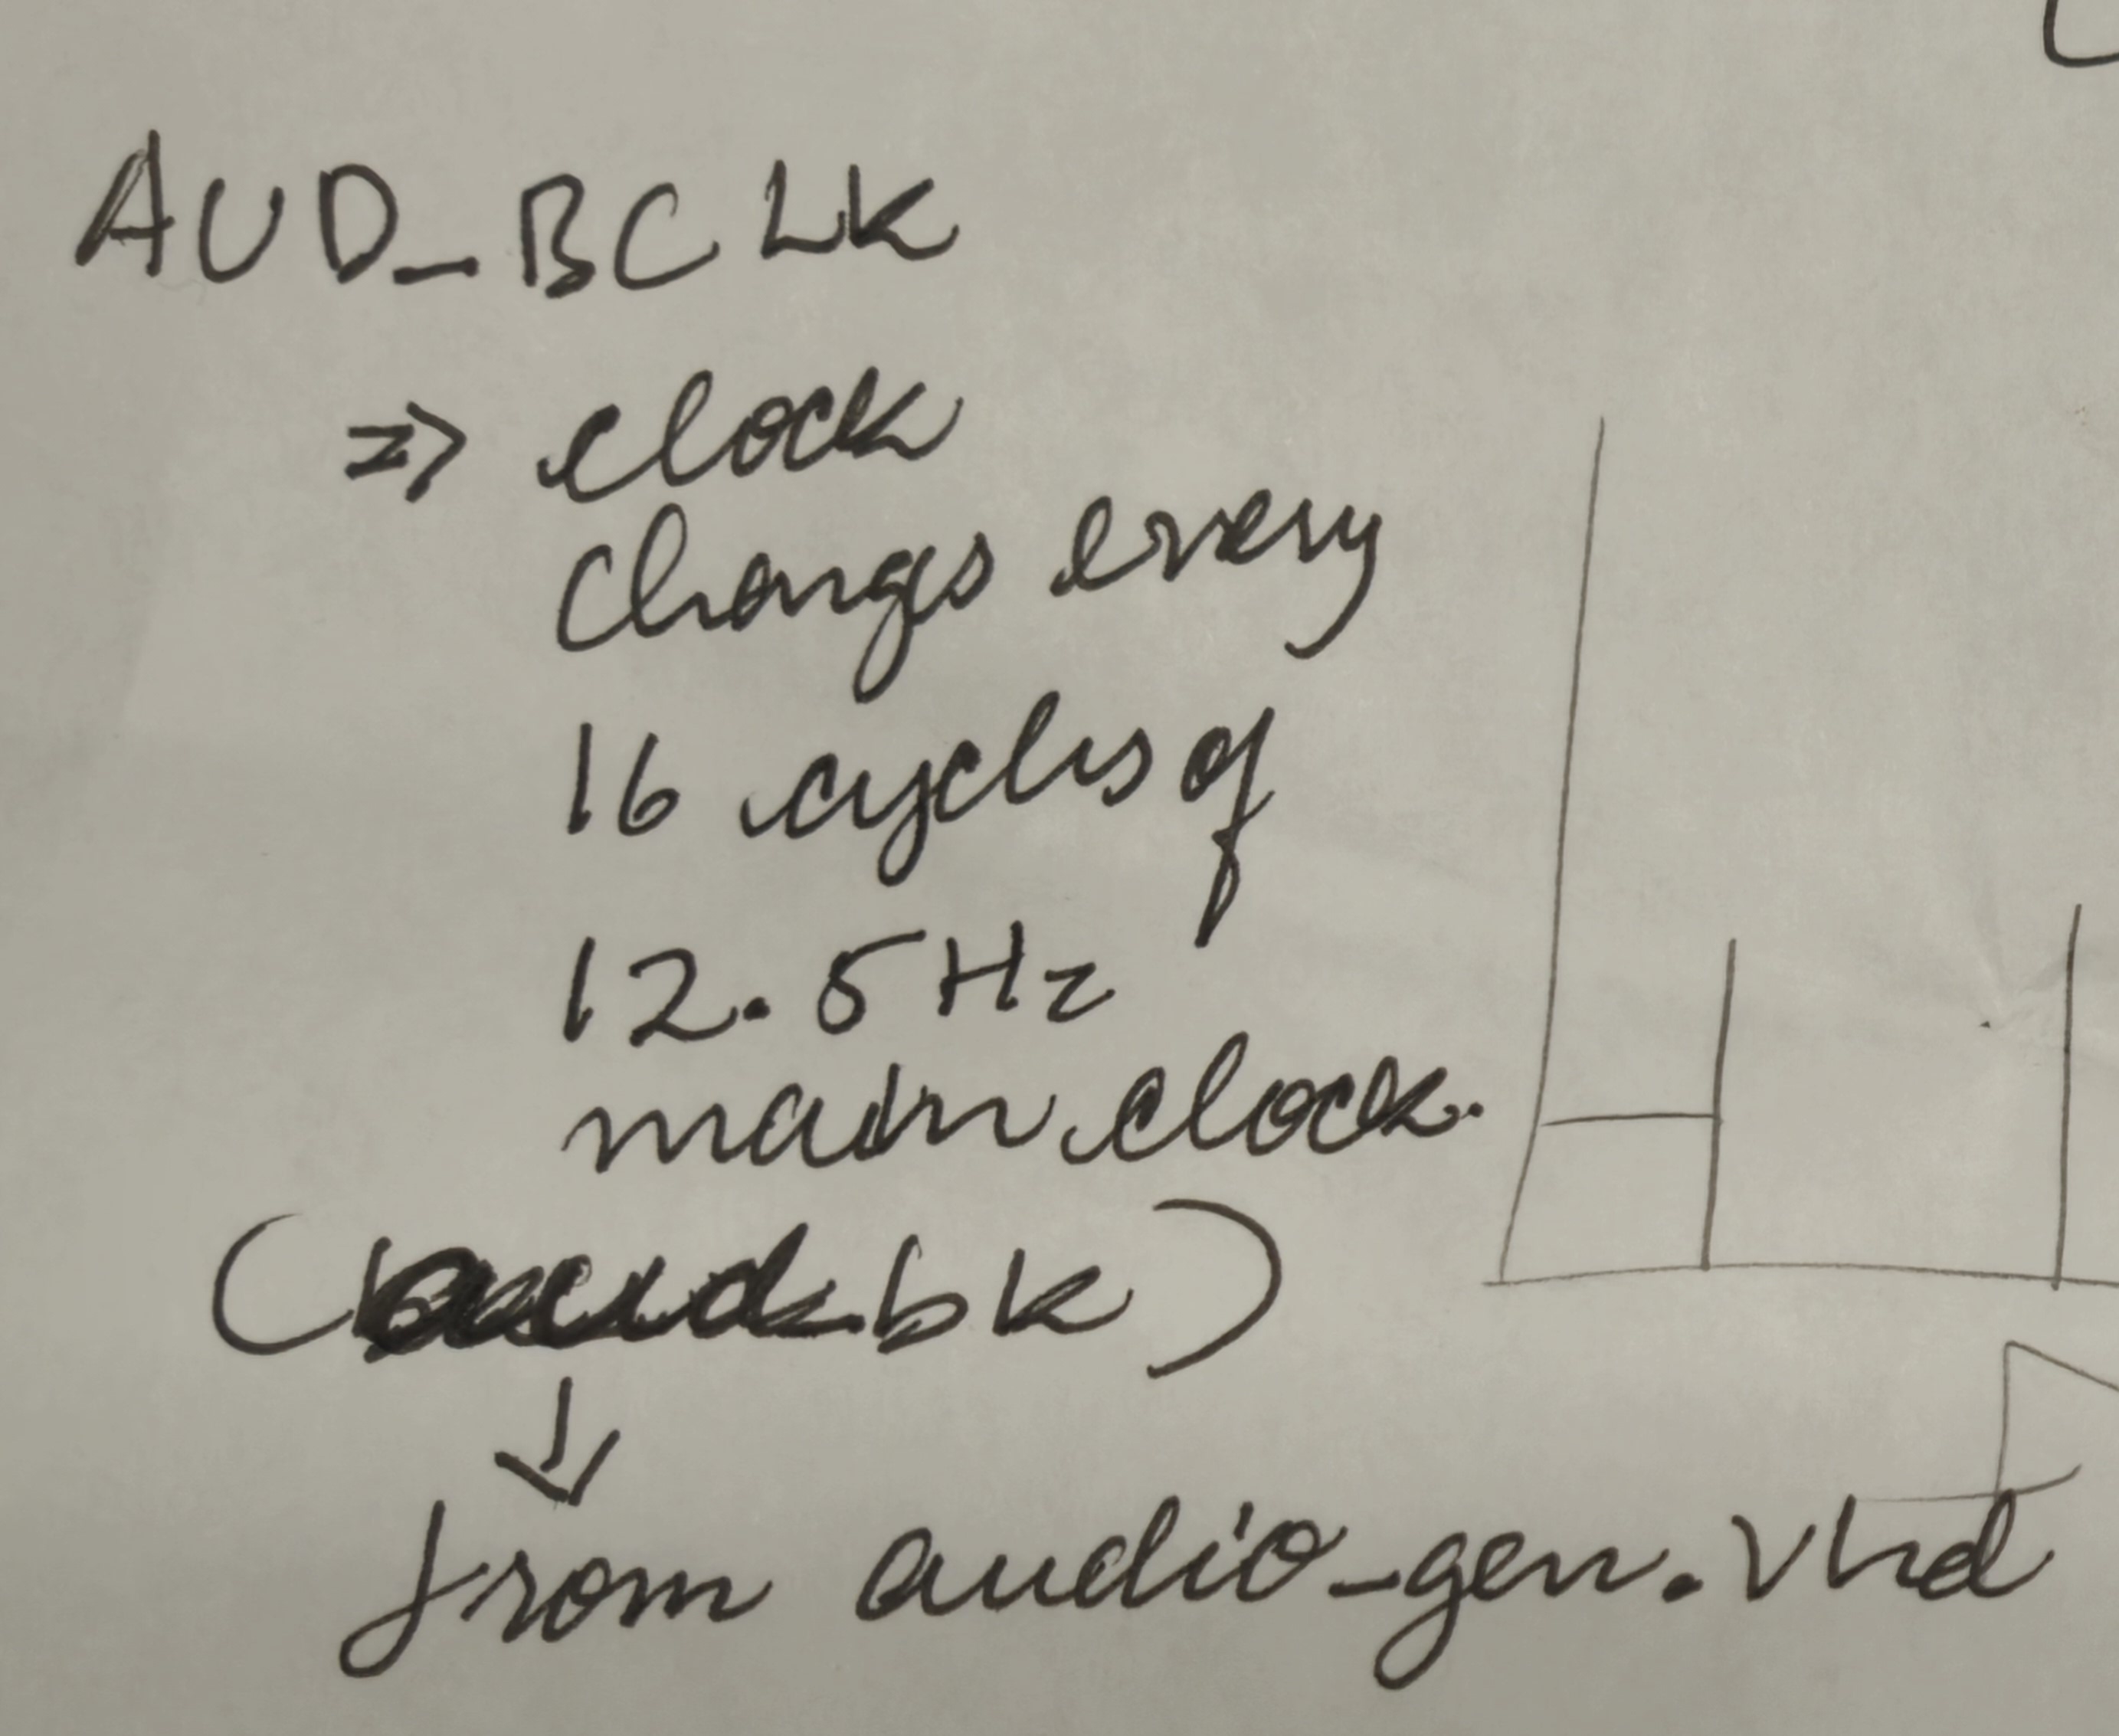 AUD_BCLK
=> clock
changs every
16 cycles of
12.5Hz
main clock.
(aud.bk)
↓
from audio-gen.vhd